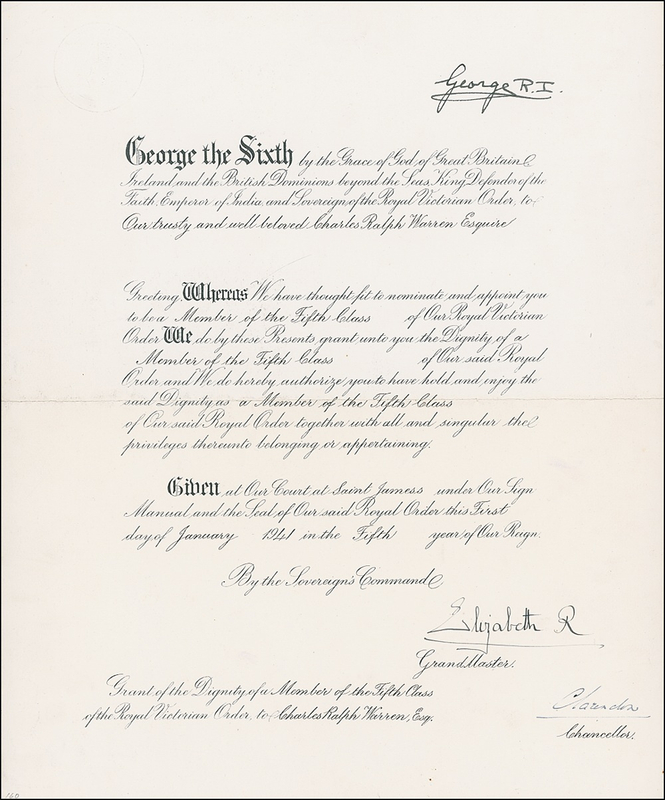 George R.I.
George the Sixth by the Grace of God, of Great Britain
Ireland and the British Dominions beyond the Seas, King Defender of the
Faith, Emperor of India, and Sovereign of the Royal Victorian Order, to
Our trusty and well beloved Charles Ralph Warren Esquire
Greeting, Whereas We have thought fit to nominate and appoint you
to be a Member of the Fifth Class of Our Royal Victorian
Order We do by these Presents, grant unto you the Dignity of a
Member of the Fifth Class of Our said Royal
Order and We do hereby authorize you to have hold and enjoy the
said Dignity as a Member of the Fifth Class
of Our said Royal Order together with all and singular the
privileges thereunto belonging or appertaining.
Given at Our Court at Saint James's under Our Sign
Manual and the Seal of Our said Royal Order this First
day of January 1941 in the Fifth year of Our Reign.
By the Sovereign's Command
Elizabeth R
Grand Master.
Grant of the Dignity of a Member of the Fifth Class
of the Royal Victorian Order, to Charles Ralph Warren, Esq.
Clarendon
Chancellor.
160